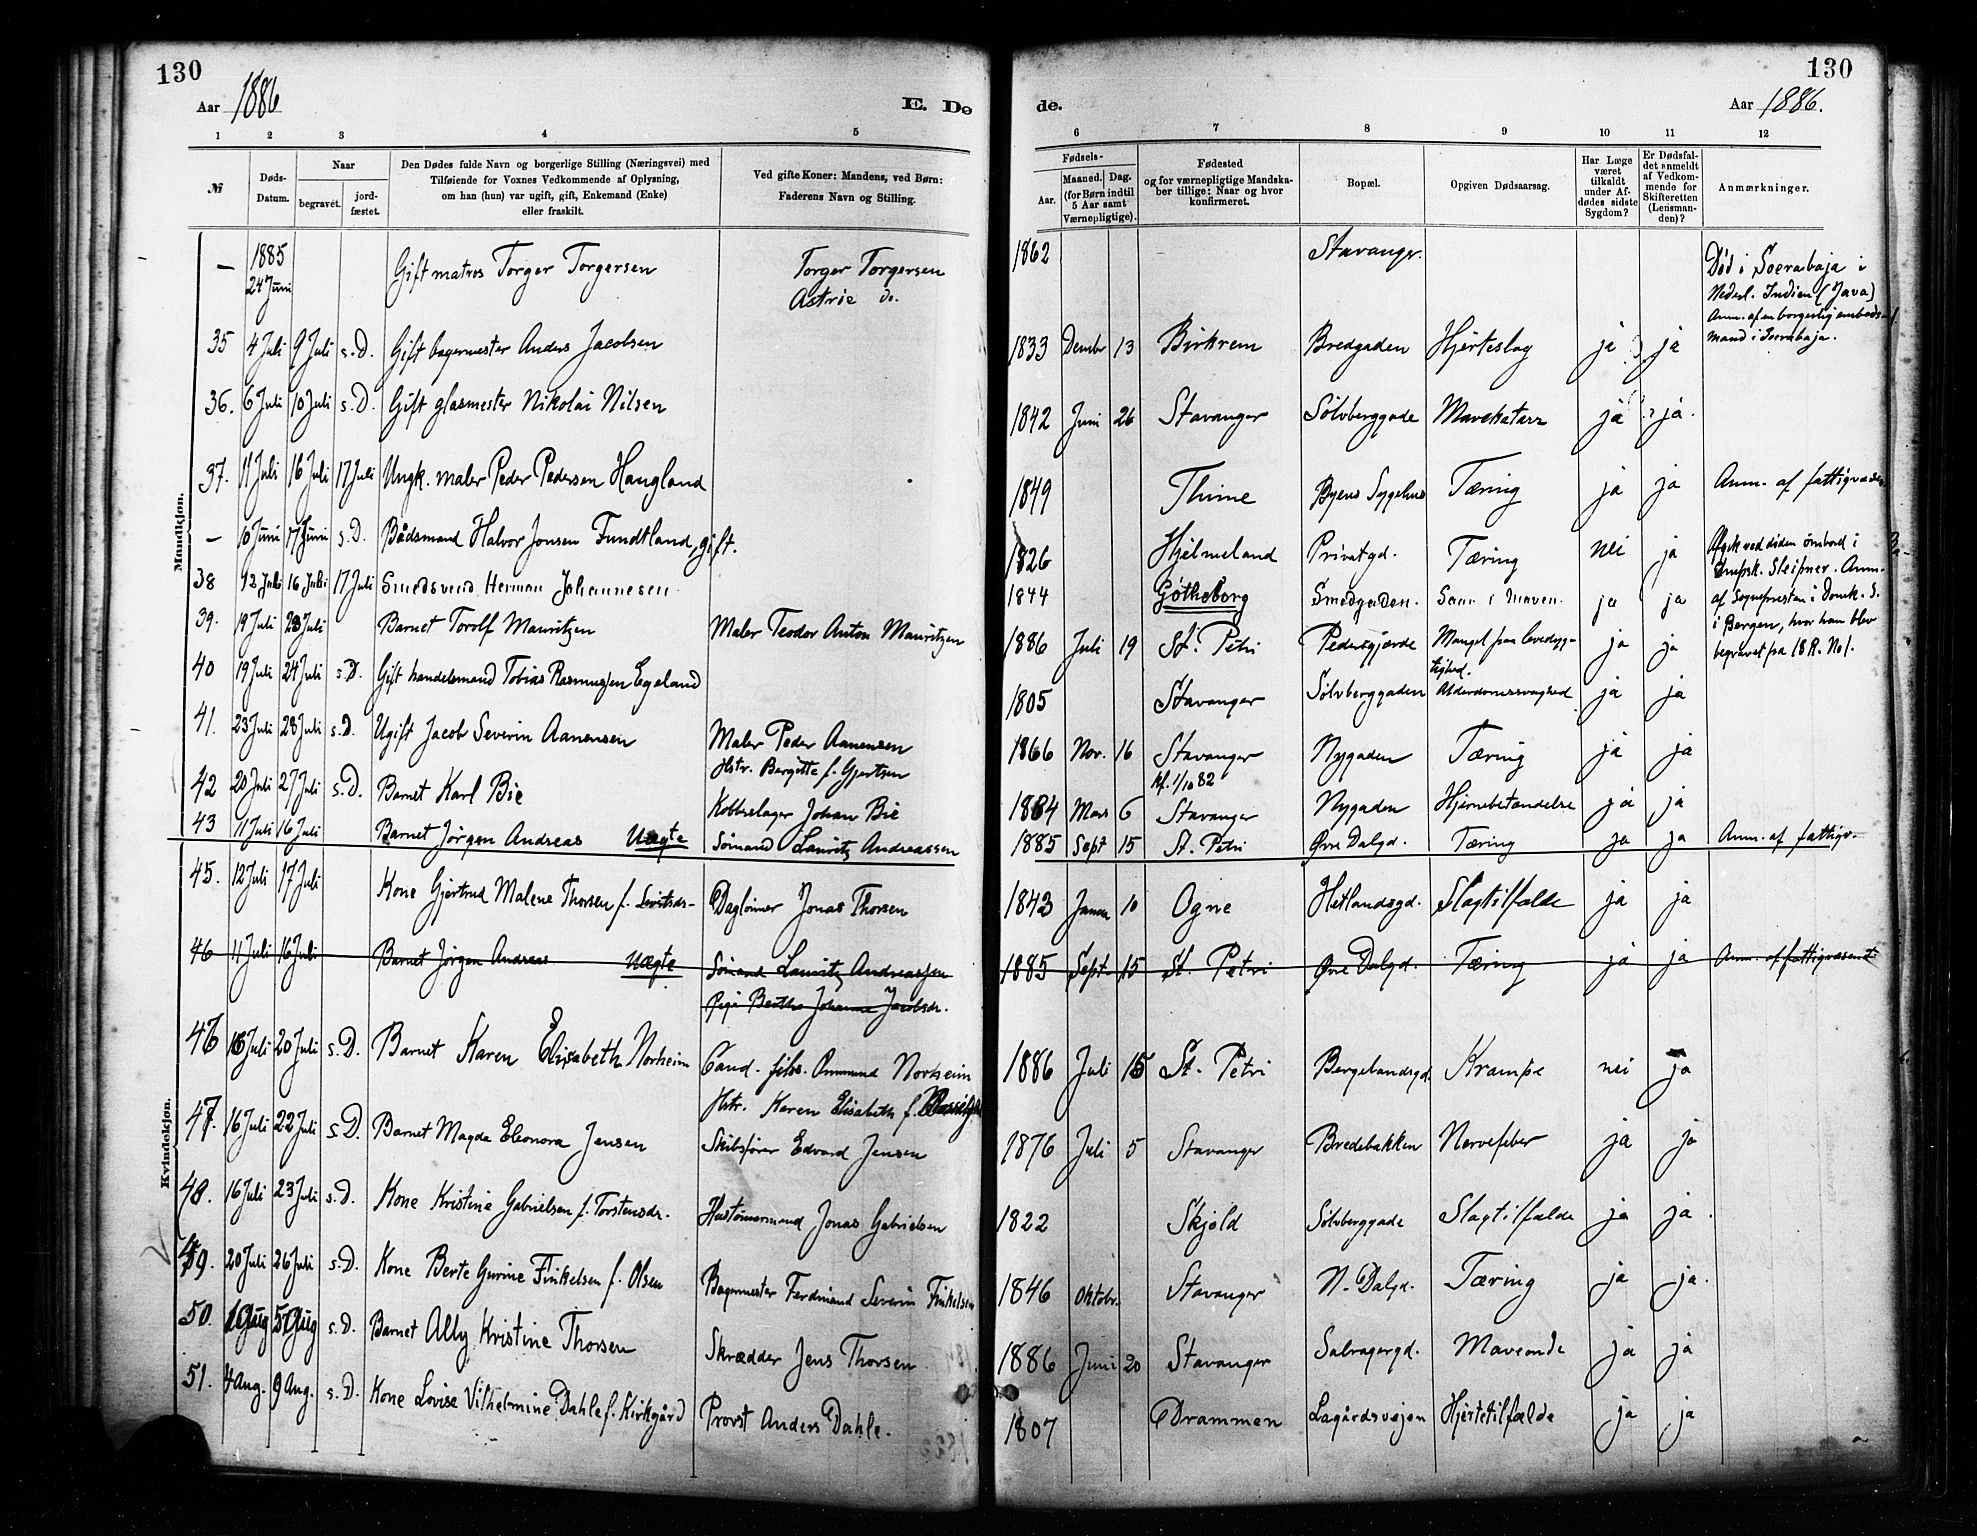 130
130
Aar 1886
E. De
de.
Aar 1886.
1 2 3 4 5 6 7 8 9 10 11 12
№
Døds-
Datum.
Naar
begravet.
jord-
fæstet.
Den Dødes fulde Navn og borgerlige Stilling (Næringsvei) med
Tilføiende for Voxnes Vedkommende af Oplysning,
om han (hun) var ugift, gift, Enkemand (Enke)
eller fraskilt.
Ved gifte Koner: Mandens, ved Børn:
Faderens Navn og Stilling.
Fødsels-
Aar.
Maaned. Dag.
(for Børn indtil
5 Aar samt
Værnepligtige).
Fødested
og for værnepligtige Mandska-
ber tillige: Naar og hvor
konfirmeret.
Bopæl.
Opgiven Dødsaarsag.
Har Læge
været
tilkaldt
under Af-
dødes sidste
Sygdom?
Er Dødsfal-
det anmeldt
af Vedkom-
mende for
Skifteretten
(Lensman-
den)?
Anmærkninger.
Mandkjøn.
— 1885 24 Juni Gift matros Torger Torgersen Torger Torgersen 1862 Stavanger.
Astrie do.
Død i Soerabaja i
Nederl. Indien (Java)
Anm. af en borgerlig embeds-
mand i Soerabaja.
35 4 Juli 9 Juli s.D. Gift bagermester Anders Jacobsen 1833 Dembr 13 Birkrem Bredgaden Hjerteslag ja ja
36. 6 Juli 10 Juli s.D. Gift glasmester Nikolai Nilsen 1842 Juni 26 Stavanger Sølvberggade Mavekatarr ja ja.
37. 11 Juli 16 Juli 17 Juli Ungk. maler Peder Pedersen Haugland 1849 Thime Byens Sygehus Tæring ja ja Anm. af fattigvæsen
— 10 Juni 17 Juni s.D. Bådsmand Halvor Jonsen Fundtland, gift. 1826 Hjelmeland Privatgd. Tæring nei ja
Afgik ved døden ombord i
Dmpsk. Sleipner. Anm.
af Sognepresten i Domk. S.
i Bergen, hvor han blev
begravet pa 18 R. No 1.
38 12 Juli 16 Juli 17 Juli Smedsvend Herman Johannesen 1844 Gøtheborg Smedgaden. i Maven ja ja
39. 19 Juli 23 Juli Barnet Torolf Mauritzen Maler Teodor Anton Mauritzen 1886 Juli 19 St. Petri Pedersgjerde Mangel paa levedyg-
tighed. ja ja
40 19 Juli 24 Juli s.D. Gift handelsmand Tobias Rasmussen Egeland 1805 Stavanger Sølvberggaden Alderdomssvaghed ja ja
41. 23 Juli 28 Juli s.D. Ugift Jacob Severin Aanensen Maler Peder Aanensen 1866 Nov. 16 Stavanger Nygaden Tæring ja ja
Hstr. Bergitte f. Gjertsen
kf. 1/10 82
42 20 Juli 27 Juli s.D. Barnet Karl Bie Kobberslager Johan Bie 1884 Mars 6 Stavanger Nygaden Hjernebetændelse ja ja
43 11 Juli 16 Juli Barnet Jørgen Andreas Uægte Sømand Lauritz Andreassen 1885 Sept 15 St. Petri Øvre Dalgd. Tæring ja ja Anm. af fattigv.
Kvindekjøn.
45. 12 Juli 17 Juli Kone Gjertrud Malene Thorsen f. Daglønner Jonas Thorsen 1843 Januar 10 Ogne Hetlandsgd. Slagtilfælde ja ja
46 11 Juli 16 Juli Barnet Jørgen Andreas Uægte Sømand Lauritz Andreassen 1885 Sept 15 St. Petri Øvre Dalgd. Tæring ja ja Anm. af fattigvæsenet
Pige Berthe Johanne Jacobsdr.
46 18 Juli 20 Juli s.D. Barnet Karen Elisabeth Norheim Cand. filos. Ommund Norheim 1886 Juli 15 St. Petri Bergelandsgd. Krampe nei ja
Hstr. Karen Elisabeth f.
47. 16 Juli 22 Juli s.D. Barnet Magda Eleonora Jensen Skibsfører Edvard Jensen 1876 Juli 5 Stavanger Bredebakken Nervefeber ja ja
48. 16 Juli 23 Juli s.D. Kone Kristine Gabrielsen f. Torstensdr. Hustømermand Jonas Gabrielsen 1822 Skjold Sølvberggade Slagtilfælde ja ja.
49. 20 Juli 26 Juli s.D. Kone Berte Gurine Finkelsen f. Olsen Bagermester Ferdinand Severin Finkelsen 1846 Oktobr. Stavanger N. Dalgd. Tæring ja ja.
50. 1 Aug 5 Aug s.D. Barnet Ally Kristine Thorsen Skrædder Jens Thorsen 1886 Juni 20 Stavanger Salvagergd. Maveonde ja ja
51. 4 Aug. 9 Aug. s.D. Kone Lovise Vilhelmine Dahle f. Kirkgård Provst Anders Dahle. 1807 Drammen Lagårdsvejen Hjertetilfælde ja ja